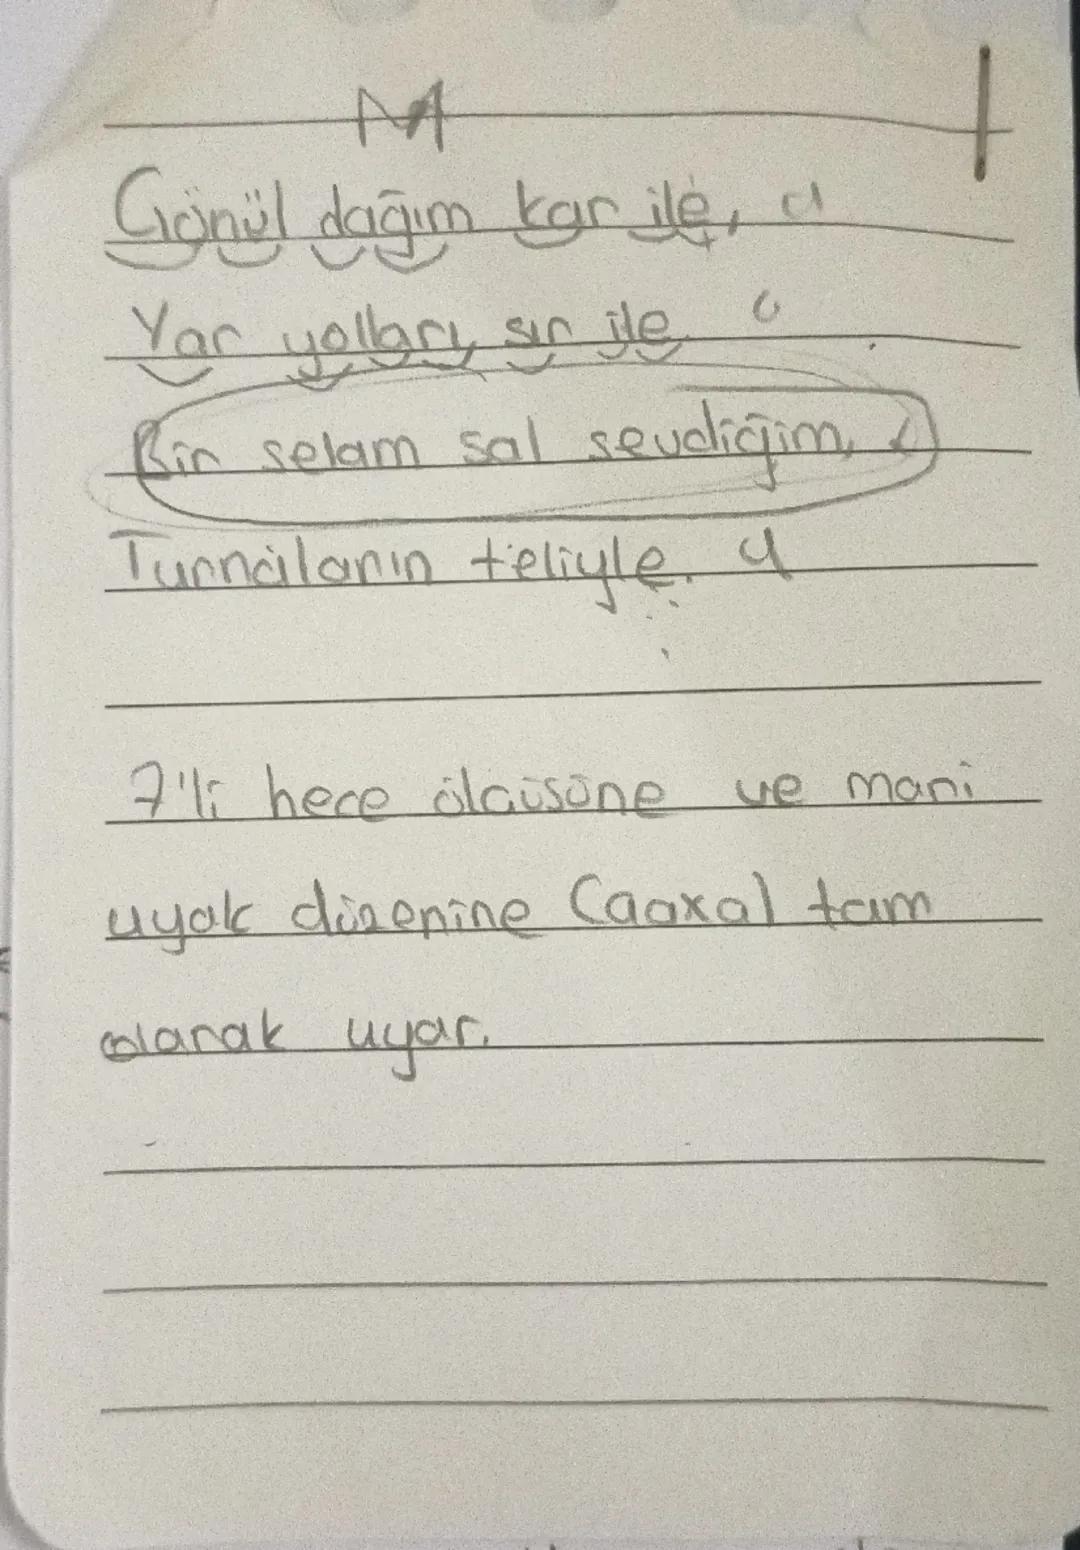 M
Gönül dağım kar ile, a
Yar yolları sır ile a
Bin selam sal sevdiğim,
Turnaların teliyle. a
7'li hece ölçüsüne ve mani
uyak düzenine (aaxa) tam
olarak uyar.